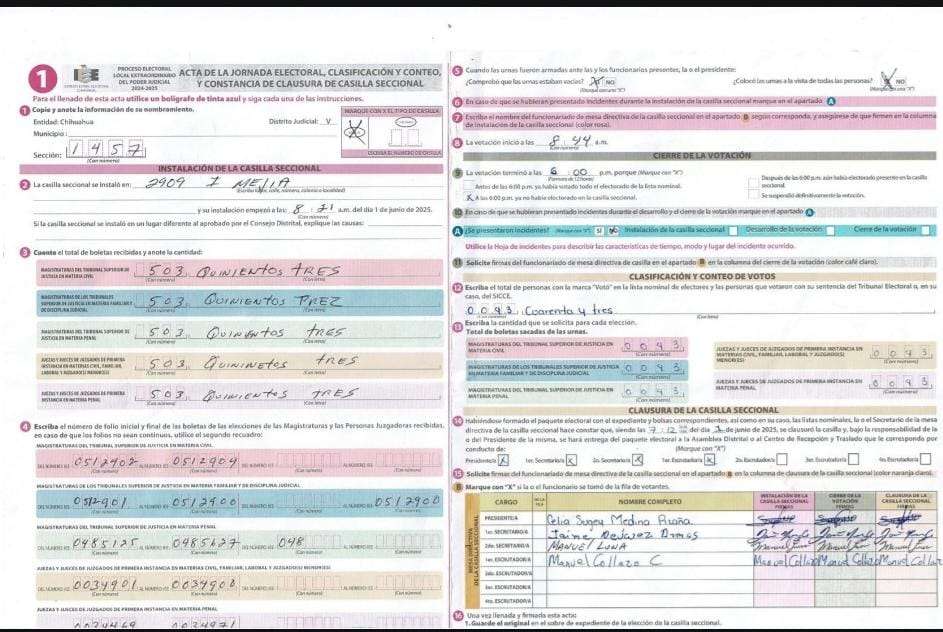 1
PROCESO ELECTORAL
LOCAL EXTRAORDINARIO
DEL PODER JUDICIAL
2024-2025
ACTA DE LA JORNADA ELECTORAL, CLASIFICACIÓN Y CONTEO,
Y CONSTANCIA DE CLAUSURA DE CASILLA SECCIONAL
Para el llenado de esta acta utilice un bolígrafo de tinta azul y siga cada una de las instrucciones.
1 Copie y anote la información de su nombramiento.
Entidad: Chihuahua
Distrito Judicial: V
Municipio:
Sección: 1 4 5 7
(Con número)
MARQUE CON X EL TIPO DE CASILLA
ESCRIBA EL NÚMERO DE CASILLA
INSTALACIÓN DE LA CASILLA SECCIONAL
2 La casilla seccional se instaló en: 2909 I MEJIA
(Escriba lugar, calle, número, colonia o localidad)
y su instalación empezó a las: 8 : 21 a.m. del día 1 de junio de 2025.
(Con número)
Si la casilla seccional se instaló en un lugar diferente al aprobado por el Consejo Distrital, explique las causas:
3 Cuente el total de boletas recibidas y anote la cantidad:
MAGISTRATURAS DEL TRIBUNAL SUPERIOR DE
JUSTICIA EN MATERIA CIVIL
503 QUINIENTOS TRES
(Con número) (Con letra)
MAGISTRATURAS DE LOS TRIBUNALES
SUPERIOR DE JUSTICIA EN MATERIA FAMILIAR Y
DE DISCIPLINA JUDICIAL
503 QUINIENTOS
(Con número) (Con letra)
MAGISTRATURAS DEL TRIBUNAL SUPERIOR DE
JUSTICIA EN MATERIA PENAL
503 QUINIENTOS TRES
(Con número) (Con letra)
JUEZAS Y JUECES DE JUZGADOS DE PRIMERA
INSTANCIA EN MATERIAS CIVIL, FAMILIAR,
LABORAL Y JUZGADO(S) MENOR(ES)
503 QUININETOS TRES
(Con número) (Con letra)
JUEZAS Y JUECES DE JUZGADOS DE PRIMERA
INSTANCIA EN MATERIA PENAL
503 QUINIENTOS TRES
(Con número) (Con letra)
4 Escriba el número de folio inicial y final de las boletas de las elecciones de las Magistraturas y las Personas Juzgadoras recibidas,
en caso de que los folios no sean continuos, utilice el segundo recuadro:
MAGISTRATURAS DEL TRIBUNAL SUPERIOR DE JUSTICIA EN MATERIA CIVIL
0512402 0512904
MAGISTRATURAS DE LOS TRIBUNALES SUPERIOR DE JUSTICIA EN MATERIA FAMILIAR Y DE DISCIPLINA JUDICIAL
0512901 0512900 0512900
MAGISTRATURAS DEL TRIBUNAL SUPERIOR DE JUSTICIA EN MATERIA PENAL
0485125 0485627 048
JUEZAS Y JUECES DE JUZGADOS DE PRIMERA INSTANCIA EN MATERIAS CIVIL, FAMILIAR, LABORAL Y JUZGADO(S) MENOR(ES)
0034401 0034908
JUEZAS Y JUECES DE JUZGADOS DE PRIMERA INSTANCIA EN MATERIA PENAL
5 Cuando las urnas fueron armadas ante las y los funcionarios presentes, la o el presidente:
¿Comprobó que las urnas estaban vacías? SÍ NO
¿Colocó las urnas a la vista de todas las personas? SÍ NO
(Marque con una "X") (Marque con una "X")
6 En caso de que se hubieran presentado incidentes durante la instalación de la casilla seccional marque en el apartado A
7 Escriba el nombre del funcionariado de mesa directiva de la casilla seccional en el apartado B según corresponda, y asegúrese de que firmen en la columna
de instalación de la casilla seccional (color rosa).
8 La votación inició a las 8 44 a.m.
(Con número)
CIERRE DE LA VOTACIÓN
9 La votación terminó a las 6 : 00 p.m. porque (Marque con "X"):
(Formato de 12 horas)
Antes de las 6:00 p.m. ya había votado todo el electorado de la lista nominal.
X A las 6:00 p.m. ya no había electorado en la casilla seccional.
Después de las 6:00 p.m. aún había electorado presente en la casilla
seccional.
Se suspendió definitivamente la votación.
10 En caso de que se hubieran presentado incidentes durante el desarrollo y el cierre de la votación marque en el apartado A
A ¿Se presentaron incidentes? (Marque con una "X") SÍ NO Instalación de la casilla seccional Desarrollo de la votación Cierre de la votación
Utilice la Hoja de incidentes para describir las características de tiempo, modo y lugar del incidente ocurrido.
11 Solicite firmas del funcionariado de mesa directiva de casilla seccional en el apartado B en la columna del cierre de la votación (color café claro).
CLASIFICACIÓN Y CONTEO DE VOTOS
12 Escriba el total de personas con la marca "Votó" en la lista nominal de electores y las personas que votaron con su sentencia del Tribunal Electoral o, en su
caso, del SICCE.
0043 Cuarenta y tres
(Con número) (Con letra)
13 Escriba la cantidad que se solicita para cada elección.
Total de boletas sacadas de las urnas.
MAGISTRATURAS DEL TRIBUNAL SUPERIOR DE JUSTICIA EN
MATERIA CIVIL
0043
(Con número)
MAGISTRATURAS DE LOS TRIBUNALES SUPERIOR DE JUSTICIA
EN MATERIA FAMILIAR Y DE DISCIPLINA JUDICIAL
0043
(Con número)
MAGISTRATURAS DEL TRIBUNAL SUPERIOR DE JUSTICIA EN
MATERIA PENAL
0043
(Con número)
JUEZAS Y JUECES DE JUZGADOS DE PRIMERA INSTANCIA EN
MATERIAS CIVIL, FAMILIAR, LABORAL Y JUZGADO(S)
MENOR(ES)
0043
(Con número)
JUEZAS Y JUECES DE JUZGADOS DE PRIMERA INSTANCIA EN
MATERIA PENAL
0043
(Con número)
CLAUSURA DE LA CASILLA SECCIONAL
14 Habiéndose formado el paquete electoral con el expediente y bolsas correspondientes, así como en su caso, las listas nominales, la o el Secretario de la mesa
directiva de la casilla seccional hace constar que, siendo las 7:12 del día 1 de junio de 2025, se clausuró la casilla y, bajo la responsabilidad de la
o del Presidente de la misma, se hará entrega del paquete electoral a la Asamblea Distrital o al Centro de Recepción y Traslado que le corresponda por
conducto de:
(Marque con "X")
Presidente/a X 1er. Secretario/a X 2do. Secretario/a X 1er. Escrutador/a X 2o. Escrutador/a 3er. Escrutador/a 4to. Escrutador/a
15 Solicite firmas del funcionariado de mesa directiva de la casilla seccional en el apartado B en la columna de clausura de la casilla seccional (color naranja claro).
B Marque con "X" si la o el funcionario se tomó de la fila de votantes.
MESA DIRECTIVA
DE LA CASILLA SECCIONAL
CARGO
DE LA
FILA
NOMBRE COMPLETO
INSTALACIÓN DE LA
CASILLA SECCIONAL
FIRMAS
CIERRE DE LA
VOTACIÓN
FIRMAS
CLAUSURA DE LA
CASILLA SECCIONAL
FIRMAS
PRESIDENTE/A Celia Medina
1er. SECRETARIO/A Jaime Armas
2do. SECRETARIO/A MANUEL LUNA Manuel Luna Manuel Luna Manuel Luna
1er. ESCRUTADOR/A Manuel Collazo C Manuel Collazo Manuel Collazo Manuel Collazo
2do. ESCRUTADOR/A
3er. ESCRUTADOR/A
4to. ESCRUTADOR/A
16 Una vez llenada y firmada esta acta:
1. Guarde el original en el sobre de expediente de la elección de la casilla seccional.